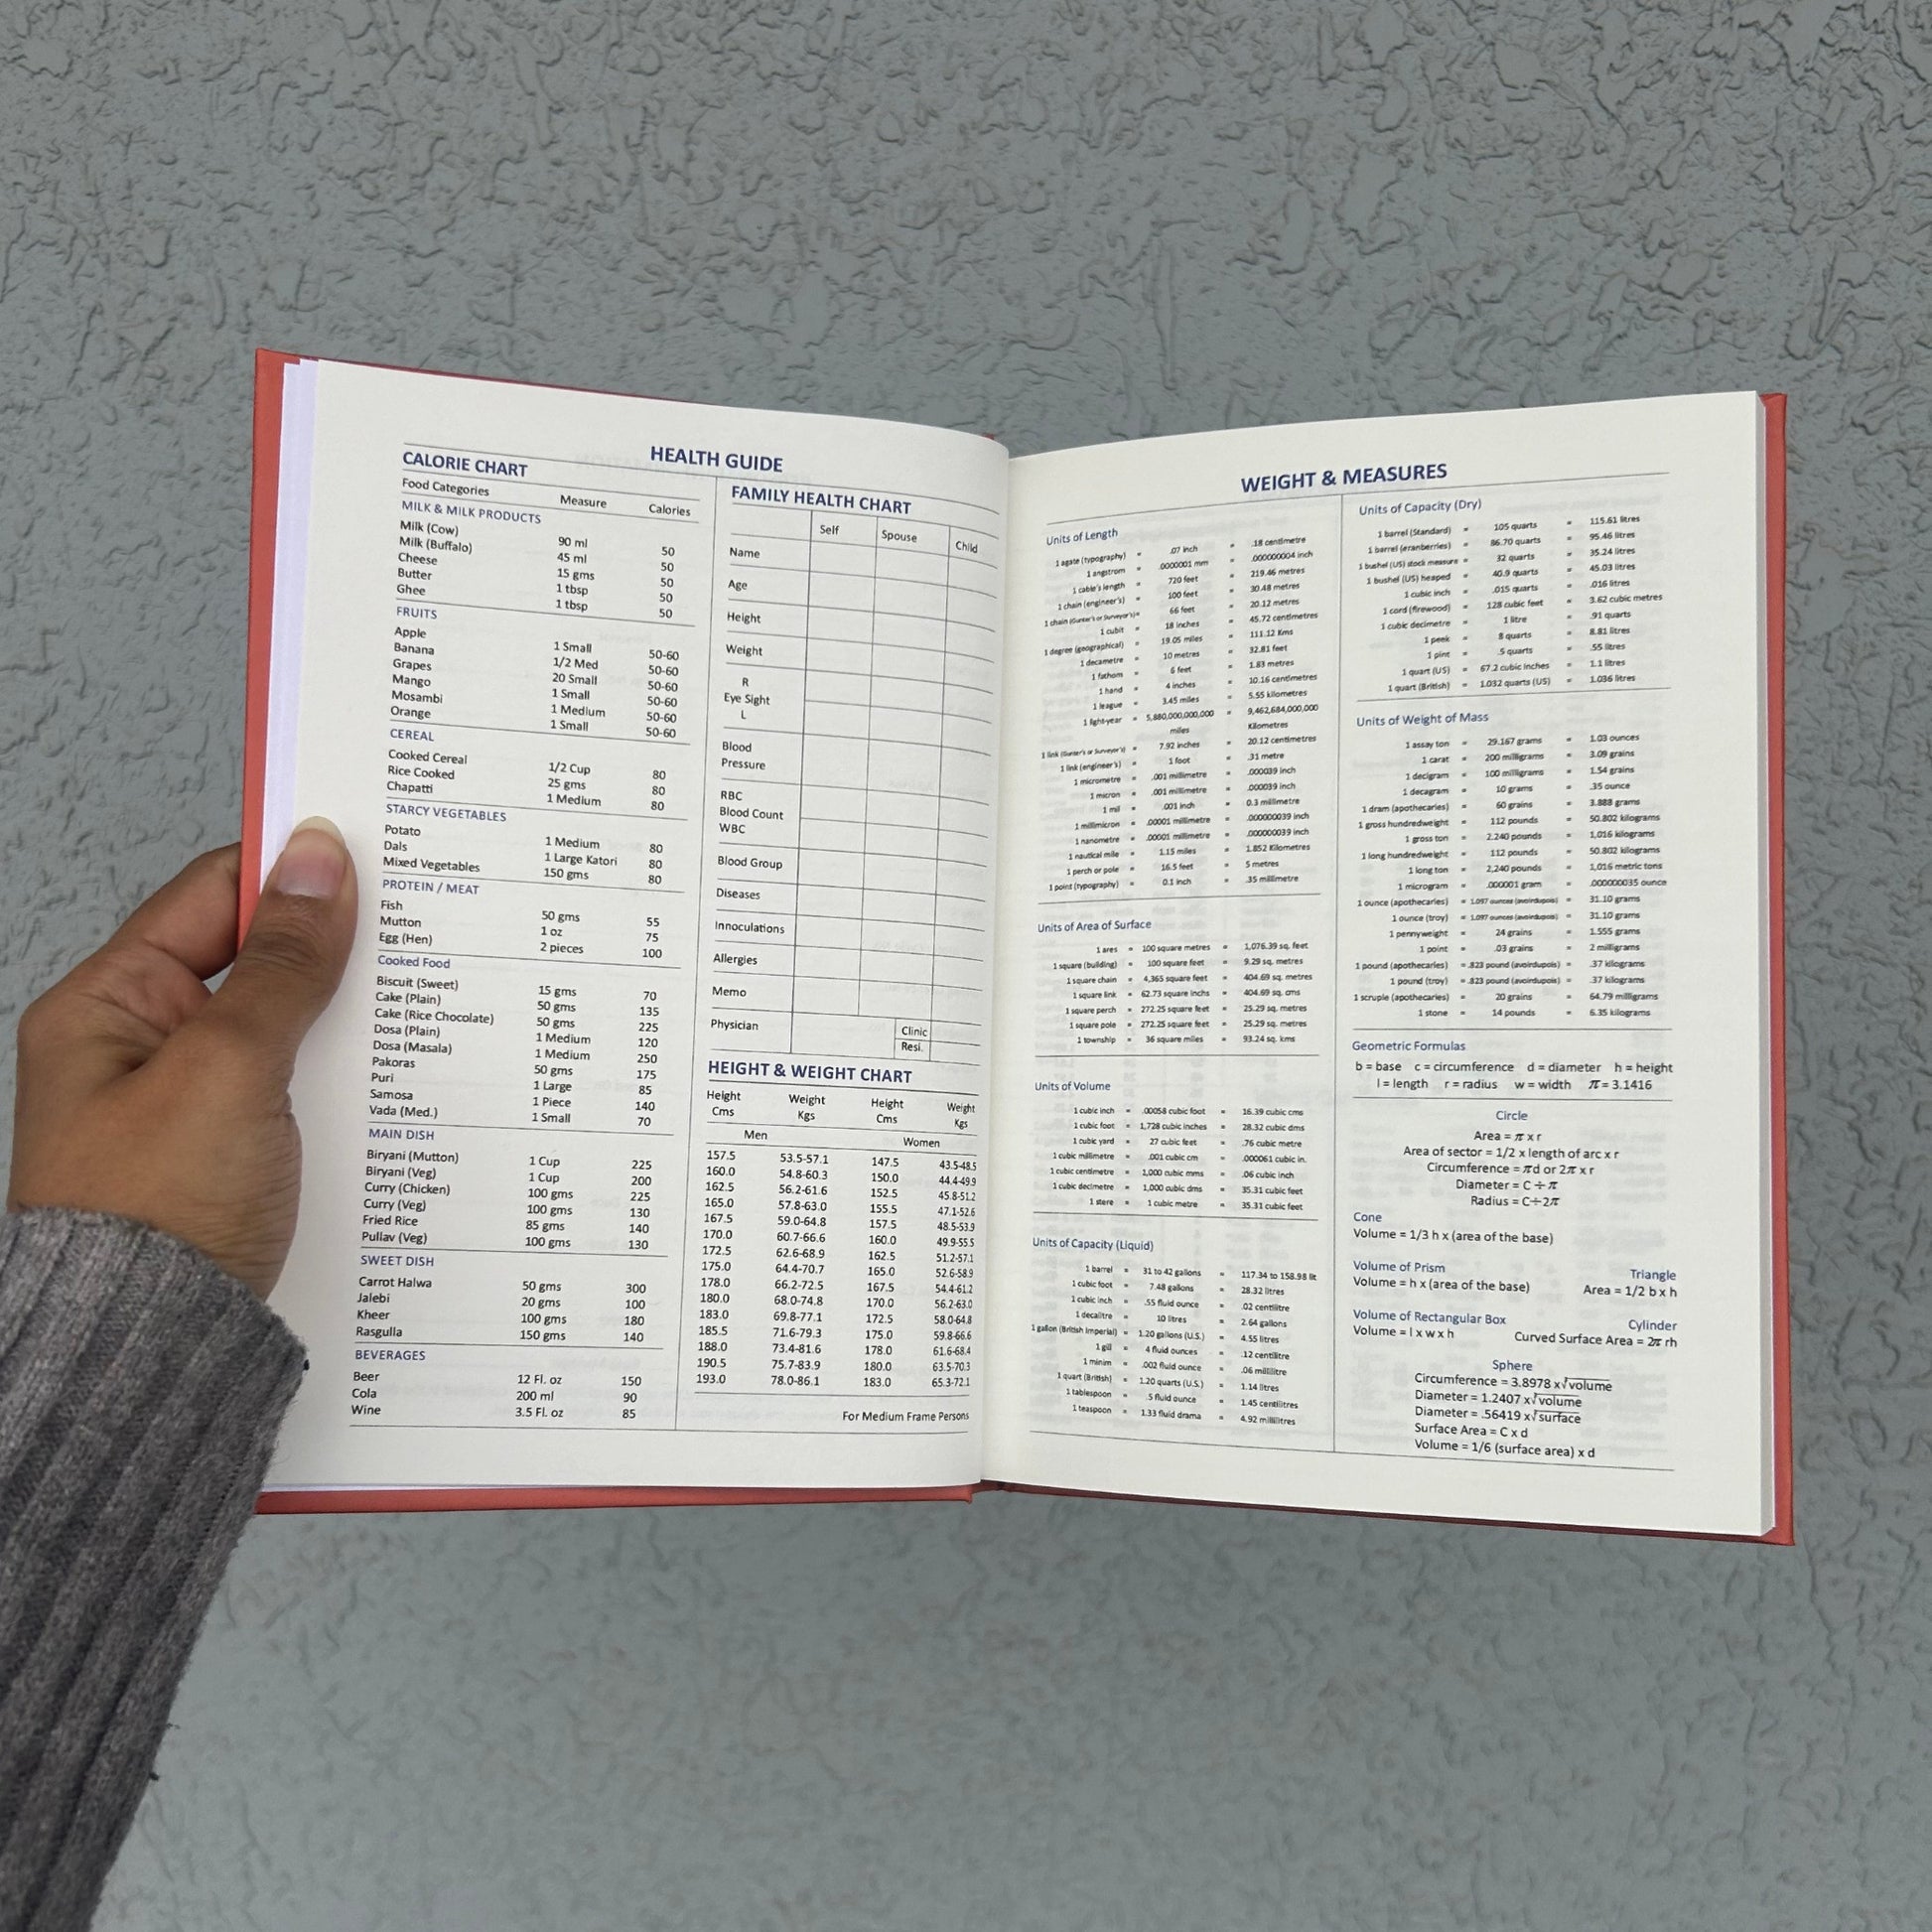 HEALTH GUIDE
CALORIE CHART
Food Categories Measure Calories
MILK & MILK PRODUCTS
Milk (Cow) 90 ml 50
Milk (Buffalo) 45 ml 50
Cheese 15 gms 50
Butter 1 tbsp 50
Ghee 1 tbsp 50
FRUITS
Apple 1 Small 50-60
Banana 1/2 Med 50-60
Grapes 20 Small 50-60
Mango 1 Small 50-60
Mosambi 1 Medium 50-60
Orange 1 Small 50-60
CEREAL
Cooked Cereal 1/2 Cup 80
Rice Cooked 25 gms 80
Chapatti 1 Medium 80
STARCY VEGETABLES
Potato 1 Medium 80
Dals 1 Large Katori 80
Mixed Vegetables 150 gms 80
PROTEIN / MEAT
Fish 50 gms 55
Mutton 1 oz 75
Egg (Hen) 2 pieces 100
Cooked Food
Biscuit (Sweet) 15 gms 70
Cake (Plain) 50 gms 135
Cake (Rice Chocolate) 50 gms 225
Dosa (Plain) 1 Medium 120
Dosa (Masala) 1 Medium 250
Pakoras 50 gms 175
Puri 1 Large 85
Samosa 1 Piece 140
Vada (Med.) 1 Small 70
MAIN DISH
Biryani (Mutton) 1 Cup 225
Biryani (Veg) 1 Cup 200
Curry (Chicken) 100 gms 225
Curry (Veg) 100 gms 130
Fried Rice 85 gms 140
Pullav (Veg) 100 gms 130
SWEET DISH
Carrot Halwa 50 gms 300
Jalebi 20 gms 100
Kheer 100 gms 180
Rasgulla 150 gms 140
BEVERAGES
Beer 12 Fl. oz 150
Cola 200 ml 90
Wine 3.5 Fl. oz 85
FAMILY HEALTH CHART
Self Spouse Child
Name
Age
Height
Weight
R
Eye Sight
L
Blood
Pressure
RBC
Blood Count
WBC
Blood Group
Diseases
Innoculations
Allergies
Memo
Physician Clinic
Resi.
HEIGHT & WEIGHT CHART
Height Weight Height Weight
Cms Kgs Cms Kgs
Men Women
157.5 53.5-57.1 147.5 43.5-48.5
160.0 54.8-60.3 150.0 44.4-49.9
162.5 56.2-61.6 152.5 45.8-51.2
165.0 57.8-63.0 155.5 47.1-52.6
167.5 59.0-64.8 157.5 48.5-53.9
170.0 60.7-66.6 160.0 49.9-55.5
172.5 62.6-68.9 162.5 51.2-57.1
175.0 64.4-70.7 165.0 52.6-58.9
178.0 66.2-72.5 167.5 54.4-61.2
180.0 68.0-74.8 170.0 56.2-63.0
183.0 69.8-77.1 172.5 58.0-64.8
185.5 71.6-79.3 175.0 59.8-66.6
188.0 73.4-81.6 178.0 61.6-68.4
190.5 75.7-83.9 180.0 63.5-70.3
193.0 78.0-86.1 183.0 65.3-72.1
For Medium Frame Persons
WEIGHT & MEASURES
Units of Length
1 agate (typography) = .07 inch = .18 centimetre
1 angstrom = .0000001 mm = .000000004 inch
1 cable's length = 720 feet = 219.46 metres
1 chain (engineer's) = 100 feet = 30.48 metres
1 chain (Gunter's or Surveyor's) = 66 feet = 20.12 metres
1 cubit = 18 inches = 45.72 centimetres
1 degree (geographical) = 19.05 miles = 111.12 Kms
1 decametre = 10 metres = 32.81 feet
1 fathom = 6 feet = 1.83 metres
1 hand = 4 inches = 10.16 centimetres
1 league = 3.45 miles = 5.55 kilometres
1 light-year = 5,880,000,000,000 = 9,462,684,000,000
miles Kilometres
1 link (Gunter's or Surveyor's) = 7.92 inches = 20.12 centimetres
1 link (engineer's) = 1 foot = .31 metre
1 micrometre = .001 millimetre = .000039 inch
1 micron = .001 millimetre = .000039 inch
1 mil = .001 inch = 0.3 millimetre
1 millimicron = .00001 millimetre = .000000039 inch
1 nanometre = .00001 millimetre = .000000039 inch
1 nautical mile = 1.15 miles = 1.852 Kilometres
1 perch or pole = 16.5 feet = 5 metres
1 point (typography) = 0.1 inch = .35 millimetre
Units of Area of Surface
1 ares = 100 square metres = 1,076.39 sq. feet
1 square (building) = 100 square feet = 9.29 sq. metres
1 square chain = 4,365 square feet = 404.69 sq. metres
1 square link = 62.73 square inchs = 404.69 sq. cms
1 square perch = 272.25 square feet = 25.29 sq. metres
1 square pole = 272.25 square feet = 25.29 sq. metres
1 township = 36 square miles = 93.24 sq. kms
Units of Volume
1 cubic inch = .00058 cubic foot = 16.39 cubic cms
1 cubic foot = 1,728 cubic inches = 28.32 cubic dms
1 cubic yard = 27 cubic feet = .76 cubic metre
1 cubic millimetre = .001 cubic cm = .000061 cubic in.
1 cubic centimetre = 1,000 cubic mms = .06 cubic inch
1 cubic decimetre = 1,000 cubic dms = 35.31 cubic feet
1 stere = 1 cubic metre = 35.31 cubic feet
Units of Capacity (Liquid)
1 barrel = 31 to 42 gallons = 117.34 to 158.98 lit
1 cubic foot = 7.48 gallons = 28.32 litres
1 cubic inch = .55 fluid ounce = .02 centilitre
1 decalitre = 10 litres = 2.64 gallons
1 gallon (British Imperial) = 1.20 gallons (U.S.) = 4.55 litres
1 gill = 4 fluid ounces = .12 centilitre
1 minim = .002 fluid ounce = .06 millilitre
1 quart (British) = 1.20 quarts (U.S.) = 1.14 litres
1 tablespoon = .5 fluid ounce = 1.45 centilitres
1 teaspoon = 1.33 fluid drama = 4.92 millilitres
Units of Capacity (Dry)
1 barrel (Standard) = 105 quarts = 115.61 litres
1 barrel (eranberries) = 86.70 quarts = 95.46 litres
1 bushel (US) stock measure = 32 quarts = 35.24 litres
1 bushel (US) heaped = 40.9 quarts = 45.03 litres
1 cubic inch = .015 quarts = .016 litres
1 cord (firewood) = 128 cubic feet = 3.62 cubic metres
1 cubic decimetre = 1 litre = .91 quarts
1 peek = 8 quarts = 8.81 litres
1 pint = .5 quarts = .55 litres
1 quart (US) = 67.2 cubic inches = 1.1 litres
1 quart (British) = 1.032 quarts (US) = 1.036 litres
Units of Weight of Mass
1 assay ton = 29.167 grams = 1.03 ounces
1 carat = 200 milligrams = 3.09 grains
1 decigram = 100 milligrams = 1.54 grains
1 decagram = 10 grams = .35 ounce
1 dram (apothecaries) = 60 grains = 3.888 grams
1 gross hundredweight = 112 pounds = 50.802 kilograms
1 gross ton = 2.240 pounds = 1,016 kilograms
1 long hundredweight = 112 pounds = 50.802 kilograms
1 long ton = 2,240 pounds = 1,016 metric tons
1 microgram = .000001 gram = .000000035 ounce
1 ounce (apothecaries) = 1.097 ounces (avoirdupois) = 31.10 grams
1 ounce (troy) = 1.097 ounces (avoirdupois) = 31.10 grams
1 pennyweight = 24 grains = 1.555 grams
1 point = .03 grains = 2 milligrams
1 pound (apothecaries) = .823 pound (avoirdupois) = .37 kilograms
1 pound (troy) = .823 pound (avoirdupois) = .37 kilograms
1 scruple (apothecaries) = 20 grains = 64.79 milligrams
1 stone = 14 pounds = 6.35 kilograms
Geometric Formulas
b = base c = circumference d = diameter h = height
l = length r = radius w = width π = 3.1416
Circle
Area = π x r
Area of sector = 1/2 x length of arc x r
Circumference = πd or 2π x r
Diameter = C ÷ π
Radius = C÷2π
Cone
Volume = 1/3 h x (area of the base)
Volume of Prism
Volume = h x (area of the base)
Triangle
Area = 1/2 b x h
Volume of Rectangular Box
Volume = l x w x h
Cylinder
Curved Surface Area = 2π rh
Sphere
Circumference = 3.8978 x√volume
Diameter = 1.2407 x√volume
Diameter = .56419 x√surface
Surface Area = C x d
Volume = 1/6 (surface area) x d